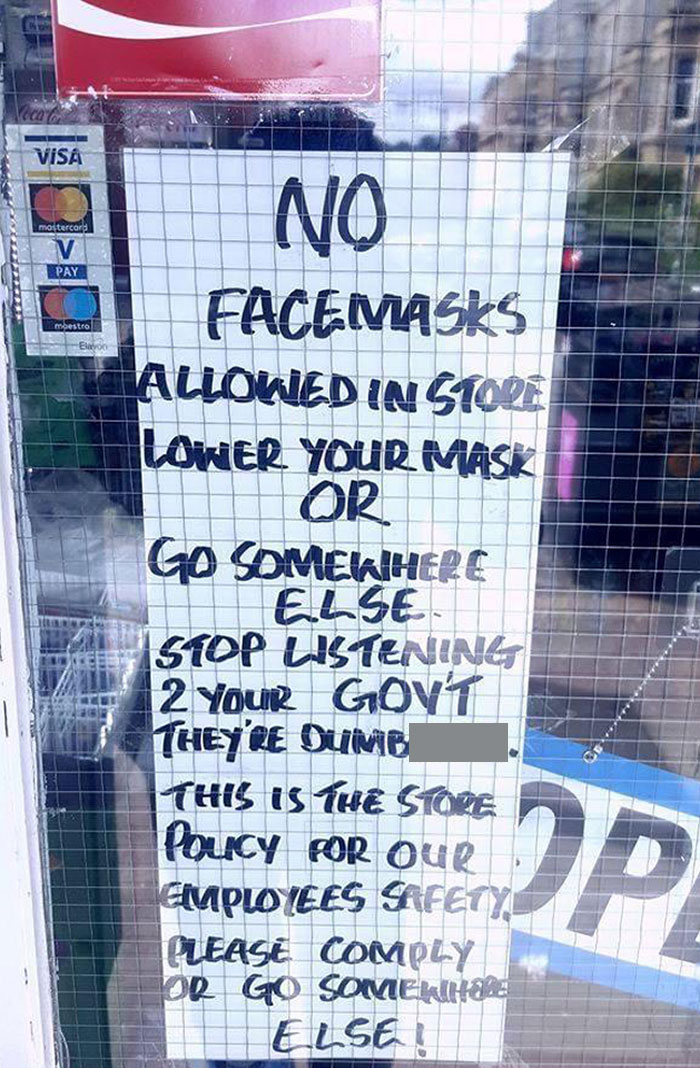 Coca-Cola
VISA
mastercard
V
PAY
maestro
Elavon
NO
FACEMASKS
ALLOWED IN STORE
LOWER YOUR MASK
OR
GO SOMEWHERE
ELSE.
STOP LISTENING
2 YOUR GOV'T
THEY'RE DUMB
THIS IS THE STORE
POLICY FOR OUR
EMPLOYEES SAFETY.
PLEASE COMPLY
OR GO SOMEWHERE
ELSE!
OPE